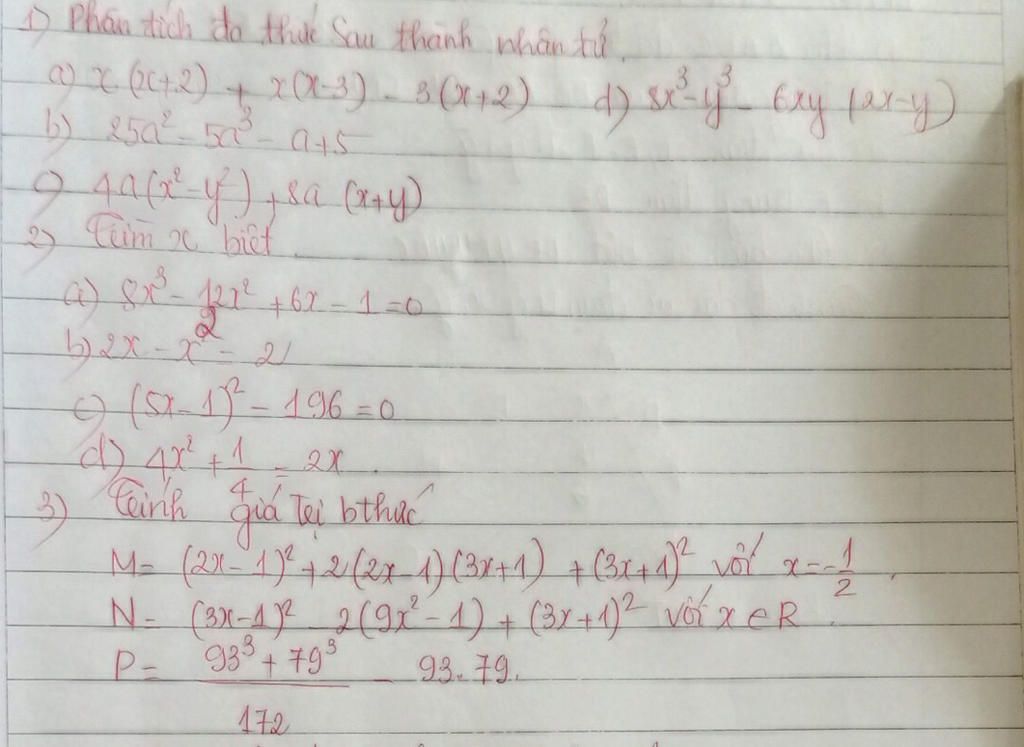 1) Phân tích đa thức sau thành nhân tử.
a) x(x+2) + x(x-3) - 3(x+2) d) 8x³-y³ - 6xy (2x-y)
b) 25a² - 5a³ - a+5
c) 4a(x²-y²) + 8a (x+y)
2) Tìm x biết
a) 8x³ - 12x² + 6x - 1 = 0
b) 2x - x² = 2
c) (5x-1)² - 196 = 0
d) 4x² + 1/4 = 2x.
3) Tính giá trị bthức
M= (2x-1)² + 2(2x-1)(3x+1) + (3x+1)² với x=-1/2.
N= (3x-1)² 2(9x²-1) + (3x+1)² với x∈R.
P= (93³+79³)/172 - 93.79.